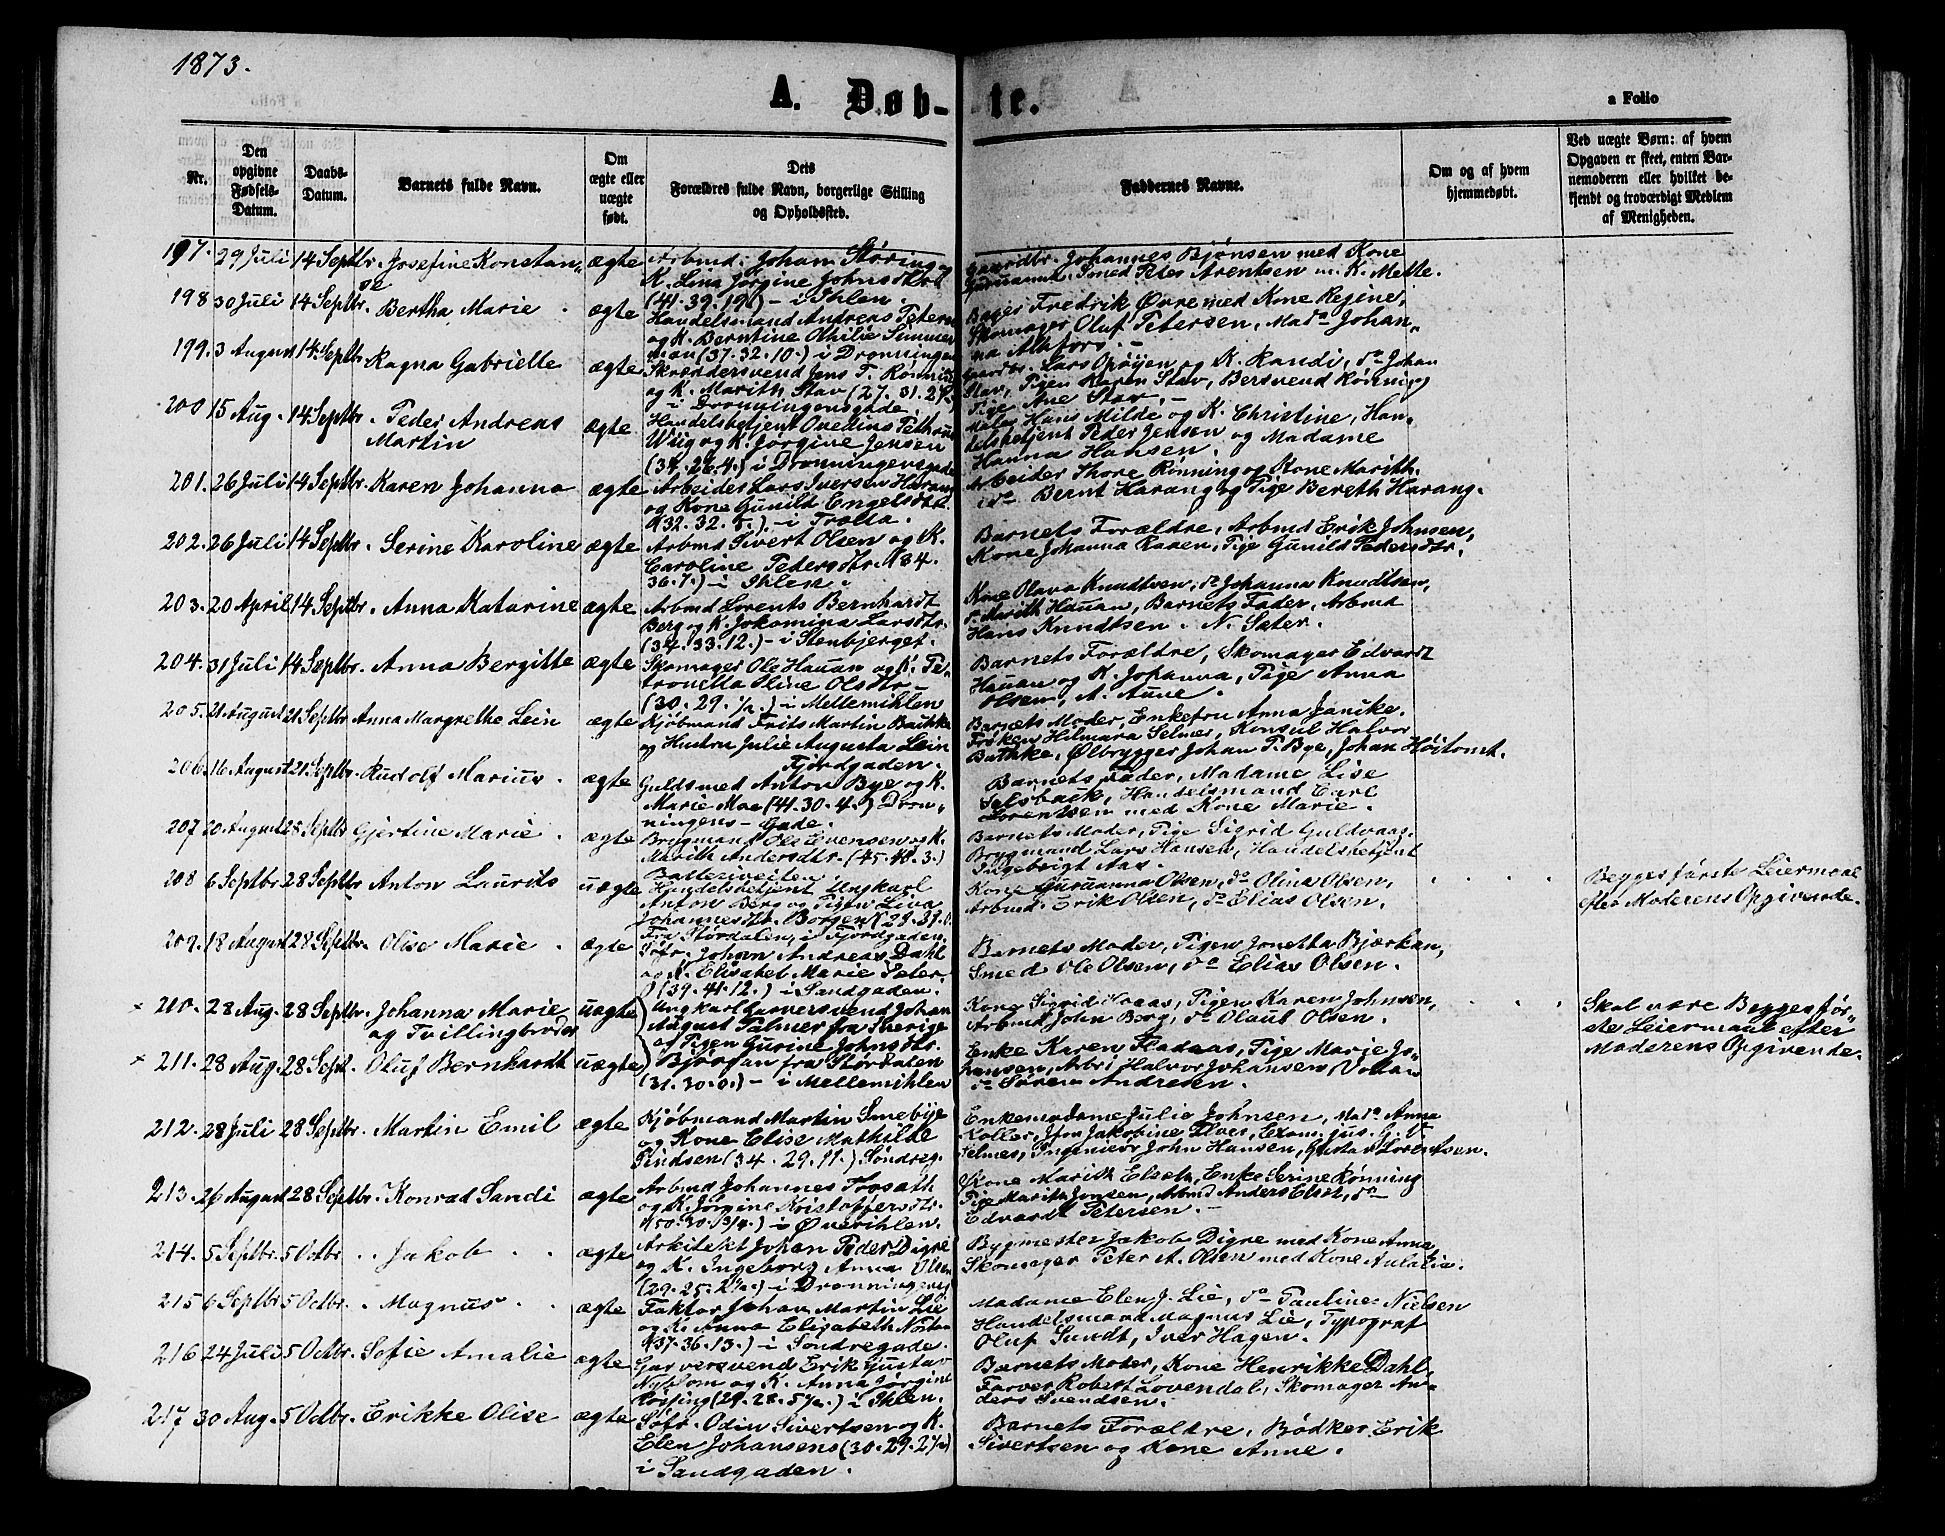 1873.
A. Døb-te.
a Folio
Nr.
Den opgivne Fødsels-Datum.
Daabs-Datum.
Barnets fulde Navn.
Om ægte eller uægte født.
Dets Forældres fulde Navn, borgerlige Stilling og Opholdssted.
Faddernes Navne.
Om og af hvem hjemmedøbt.
Ved uægte Børn: af hvem Opgaven er skeet, enten Barnemoderen eller hvilket bekjendt og troværdigt Medlem af Menigheden.
197. 29 Juli 14 Septbr. Josefine Konstan- ægte Arbmd. Johan Støring
K. Lina Jørgine Johnsdtr.
(41. 39. 19.) - i Ihlen.
Gaardbr. Johannes Bjønsen med Kone
Smed Peter Arentsen m. K. Mette.
198 30 Juli 14 Septbr. Bertha Marie ægte
Handelsmand Andreas Petersen
og K. Berntine Othilie Simmen
man (37. 32. 10.) i Dronningen
Bager Fredrik Øvre med Kone Regine,
Skomager Oluf Petersen, Mada Johan-
na Alkfors.
199. 3 August 14 Septbr. Ragna Gabrielle ægte
Skræddersvend Jens F. Rønning
og K. Marith Stav (27. 31. 2
i Dronningensgade.
Gaardbr. Lars Opøyen og K. Randi, do Johan
Stav, Pigen Karen Stav, Bersvend Rønning
Pige Ane Stav.
200 15 Aug. 14 Septbr. Peder Andreas
Martin ægte
Handelsbetjent Ovedius Petheus
Wiig og K. Jørgine Jensen
(34. 26. 4.) i Dronningensgade
Maler Hans Milde og K. Christine, Han-
delsbetjent Peder Jensen og Madame
Hanna Hansen.
201. 26 Juli 14 Septbr. Karen Johanna ægte
Arbeider Lars Iversen Harang
og Kone Gunild Engelsdtr.
(32. 32. 5.) - i Trolla.
Arbeider Thore Rønning og Kone Marith.
do Bernt Harang og Pige Bereth Harang.
202. 26 Juli 14 Septbr. Serine Karoline ægte
Arbmd Sivert Olsen og K.
Caroline Pedersdtr. (34.
36. 7.) - i Ihlen.
Barnets Forældre, Arbmd Erik Johnsen,
Kone Johanna Raaen, Pige Gunild Pedersdtr.
203. 20 April 14 Septbr. Anna Katarine ægte
Arbmd Lorents Bernhardt
Berg og K. Jokomina Larsdtr.
(34. 33. 12.) - i Stenbjerget.
Kone Olava Knudtsen, do Johanna Knudtsen,
do Marith Hauan, Barnets Fader, Arbmd
Hans Knudtsen. N. Sæter.
204. 31 Juli 14 Septbr. Anna Bergitte ægte
Skomager Ole Hauan og K. Pe-
tronella Oline Olsdtr.
(30. 29. 1/2.) - i Mellemihlen
Barnets Forældre, Skomager Edvardt
Hauan og K. Johanna, Pige Anna
Olsen, A. Aune.
205. 21 August 21 Septbr. Anna Margrethe Lein ægte
Kjøbmand Frits Martin Bathke
og Hustru Julie Augusta Lein
Fjordgaden.
Barnets Moder, Enkefru Anna Janike.
Frøken Hilmara Selmer, Konsul Halvor
Bathke, Ølbrygger Johan P. Bye, Johan Høitomt.
206. 16 August 21 Septbr. Rudolf Marius. ægte
Guldsmed Anton Bye og K.
Marie Moe (41. 30. 4.) Dron-
ningens-Gade.
Barnets Fader, Madame Lise
Selsback, Handelsmand Carl
Lorentsen med Kone Marie.
207 20 August 28 Septbr Gjertine Marie. ægte
Brygmand Ole Evensen og K.
Marith Andersdtr. (45. 40. 3.)
Batteriveiten.
Barnets Moder, Pige Sigrid Guldvaas.
Brygmand Lars Hansen, Handelsbetjent
Ingebrigt Aas.
208 6 Septbr 28 Septbr Anton Laurits uægte
Handelsbetjent Ungkarl
Anton Berg og Pigen Liva
Johannesdtr. Borgen (28. 31. 0.
Fra Størdalen, i Fjordgaden.
Kone Gurianna Olsen, do Olina Olsen,
Arbmd. Erik Olsen, do Elias Olsen.
Begges første Leiermaal
efter Moderens Opgivende.
209. 18 August 28 Septbr. Olise Marie. ægte
Søfr. Johan Andreas Dahl
og K. Elisabet Marie Peter
(39. 41. 12.) i Sandgaden.
Barnets Moder, Pigen Jonetta Bjørkan,
Smed Ole Olsen, do Elias Olsen.
× 210. 28 Aug. 28 Septbr. Johanna Marie
og Tvillingbroder uægte
Ungkarl Garversvend Johan
August Palmer fra Sverige
og Pigen Gurine Johnsdtr.
Kone Sigrid Haaas, Pigen Karen Johnsen,
Arbmd John Borg, do Olaus Olsen.
Skal være Begges før-
ste Leiermaal efter
Moderens Opgivende.
× 211. 28 Aug. 28 Sept. Oluf Bernhardt uægte
Bjørgan fra Størdalen
(31. 30. 0.) - i Mellemihlen
Enke Karen Fladaas, Pige Marie Jo-
hansen, Arb. Halvor Johansen Vollan
do Søren Andresen.
212. 28 Juli 28 Septbr. Martin Emil ægte
Kjøbmand Martin Smebye
og Kone Elise Mathilde
Findsen (34. 29. 11.) Søndreg.
Enkemadame Julie Johnsen, Mada Anna
Koller, Jfru Jakobine Elver, Exam. jus. G. V.
Selmer, Ingeniør John Hansen, Gustav Lorentsen.
213. 26 August 28 Septbr. Konrad Sandi ægte
Arbmd Johannes Fossath
og K. Jørgine Kristoffersdtr.
(50. 30. 3/4.) - i Øverihlen.
Kone Marith Elset, Enke Serine Rønning
Pige Marith Jonsen, Arbmd Anders Elset, do
Edvardt Petersen.
214. 5 Septbr. 5 Octbr. Jakob ægte
Arkitekt Johan Peder Digre
og K. Ingeborg Anna Olsen
(29. 25. 1 1/2.) i Dronningensg
Bygmester Jakob Digre med Kone Anna
Skomager Peter A. Olsen med Kone Aulalia.
215 6 Septbr 5 Octbr. Magnus. ægte
Faktor Johan Martin Lie
og K. Anna Elizabeth Nosten
(37. 36. 13.) - i Søndregade.
Madame Elen J. Lie, do Pauline Nielsen
Handelsmand Magnus Lie, Typograf
Oluf Sundt, Iver Hagen.
216 24 Juli 5 Octbr. Sofie Amalie ægte
Garversvend Erik Gustav
Nyblom og K. Anna Jørgine
Røising (29. 28. 5 1/2.) i Ihlen.
Barnets Moder, Kone Henrikke Dahl,
Farver Robert Lovendal, Skomager An-
ders Svendsen.
217 30 Aug. 5 Octbr. Erikke Olise ægte
Søfr. Odin Sivertsen og K.
Elen Johansens (30. 29. 2 1/2)
i Sandgaden.
Barnets Forældre, Bødker Erik
Sivertsen og Kone Anne.